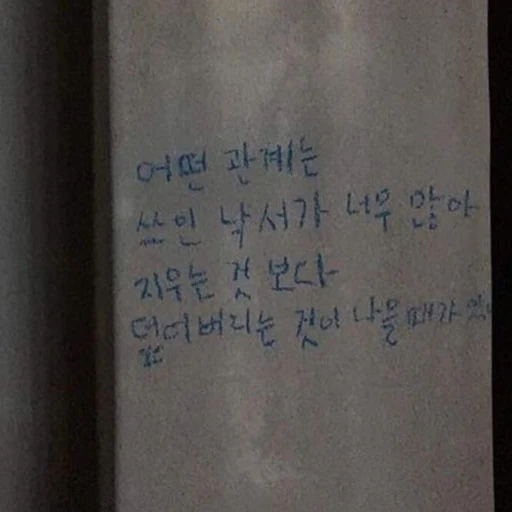 어떤 관계는
쓰인 낙서가 너무 많아
지우는 것 보다
덮어버리는 것이 나을때가